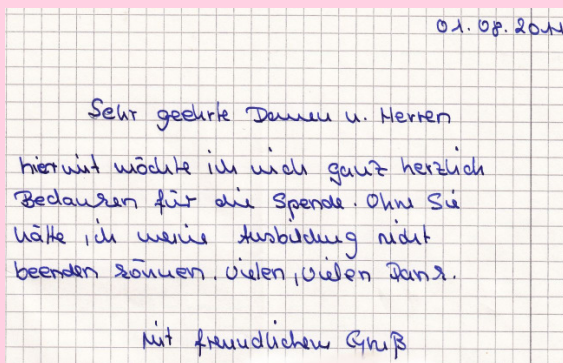 01.08.2011
Sehr geehrte Damen u. Herren
hiermit möchte ich mich ganz herzlich
Bedanken für die Spende. Ohne Sie
hätte ich meine Ausbildung nicht
beenden können. Vielen, vielen Dank.
Mit freundlichem Gruß